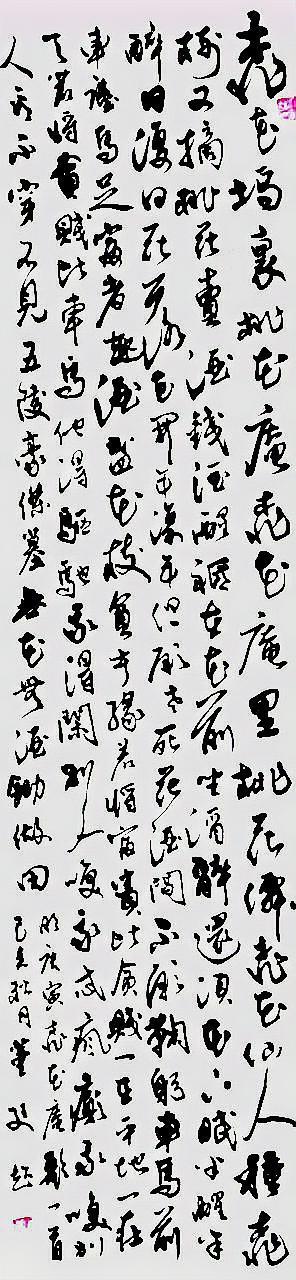 桃花塢裏桃花庵桃花庵里桃花僊桃花仙人種桃
樹又摘桃花賣酒錢酒醒祇在花前坐酒醉還須花下眠半醒半
醉日復日花開花落年復年但願老死花酒間不願鞠躬車馬前
車塵馬足富者趣酒盞花枝貧者緣若將富貴比貧賤一在平地一在
天若將貧賤比車馬他得驅馳我得閑別人笑我忒瘋癲我笑別
人看不穿不見五陵豪傑墓無花無酒鋤做田
明唐寅桃花庵歌一首
己亥秋月董